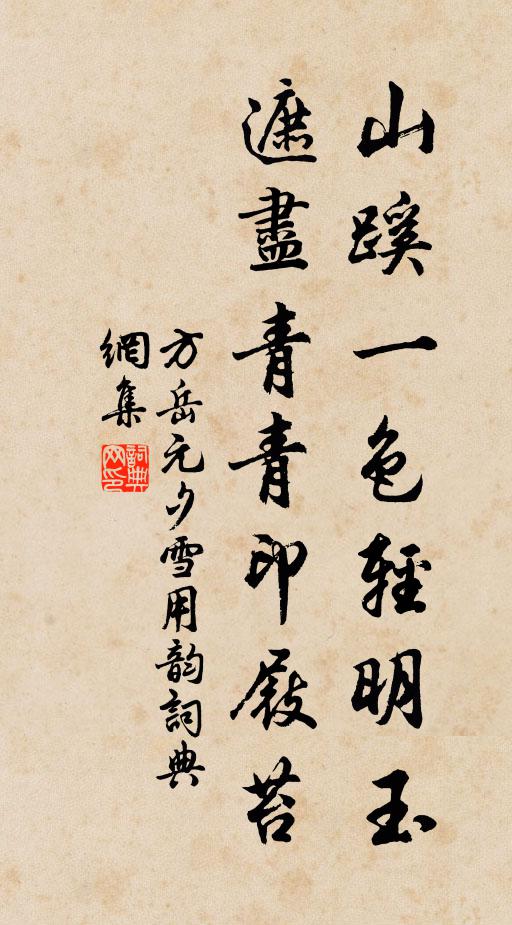 山蹊一色輕明玉
遮盡青青印屐苔
方岳元夕雪用韵詞典
網集
詞典网印